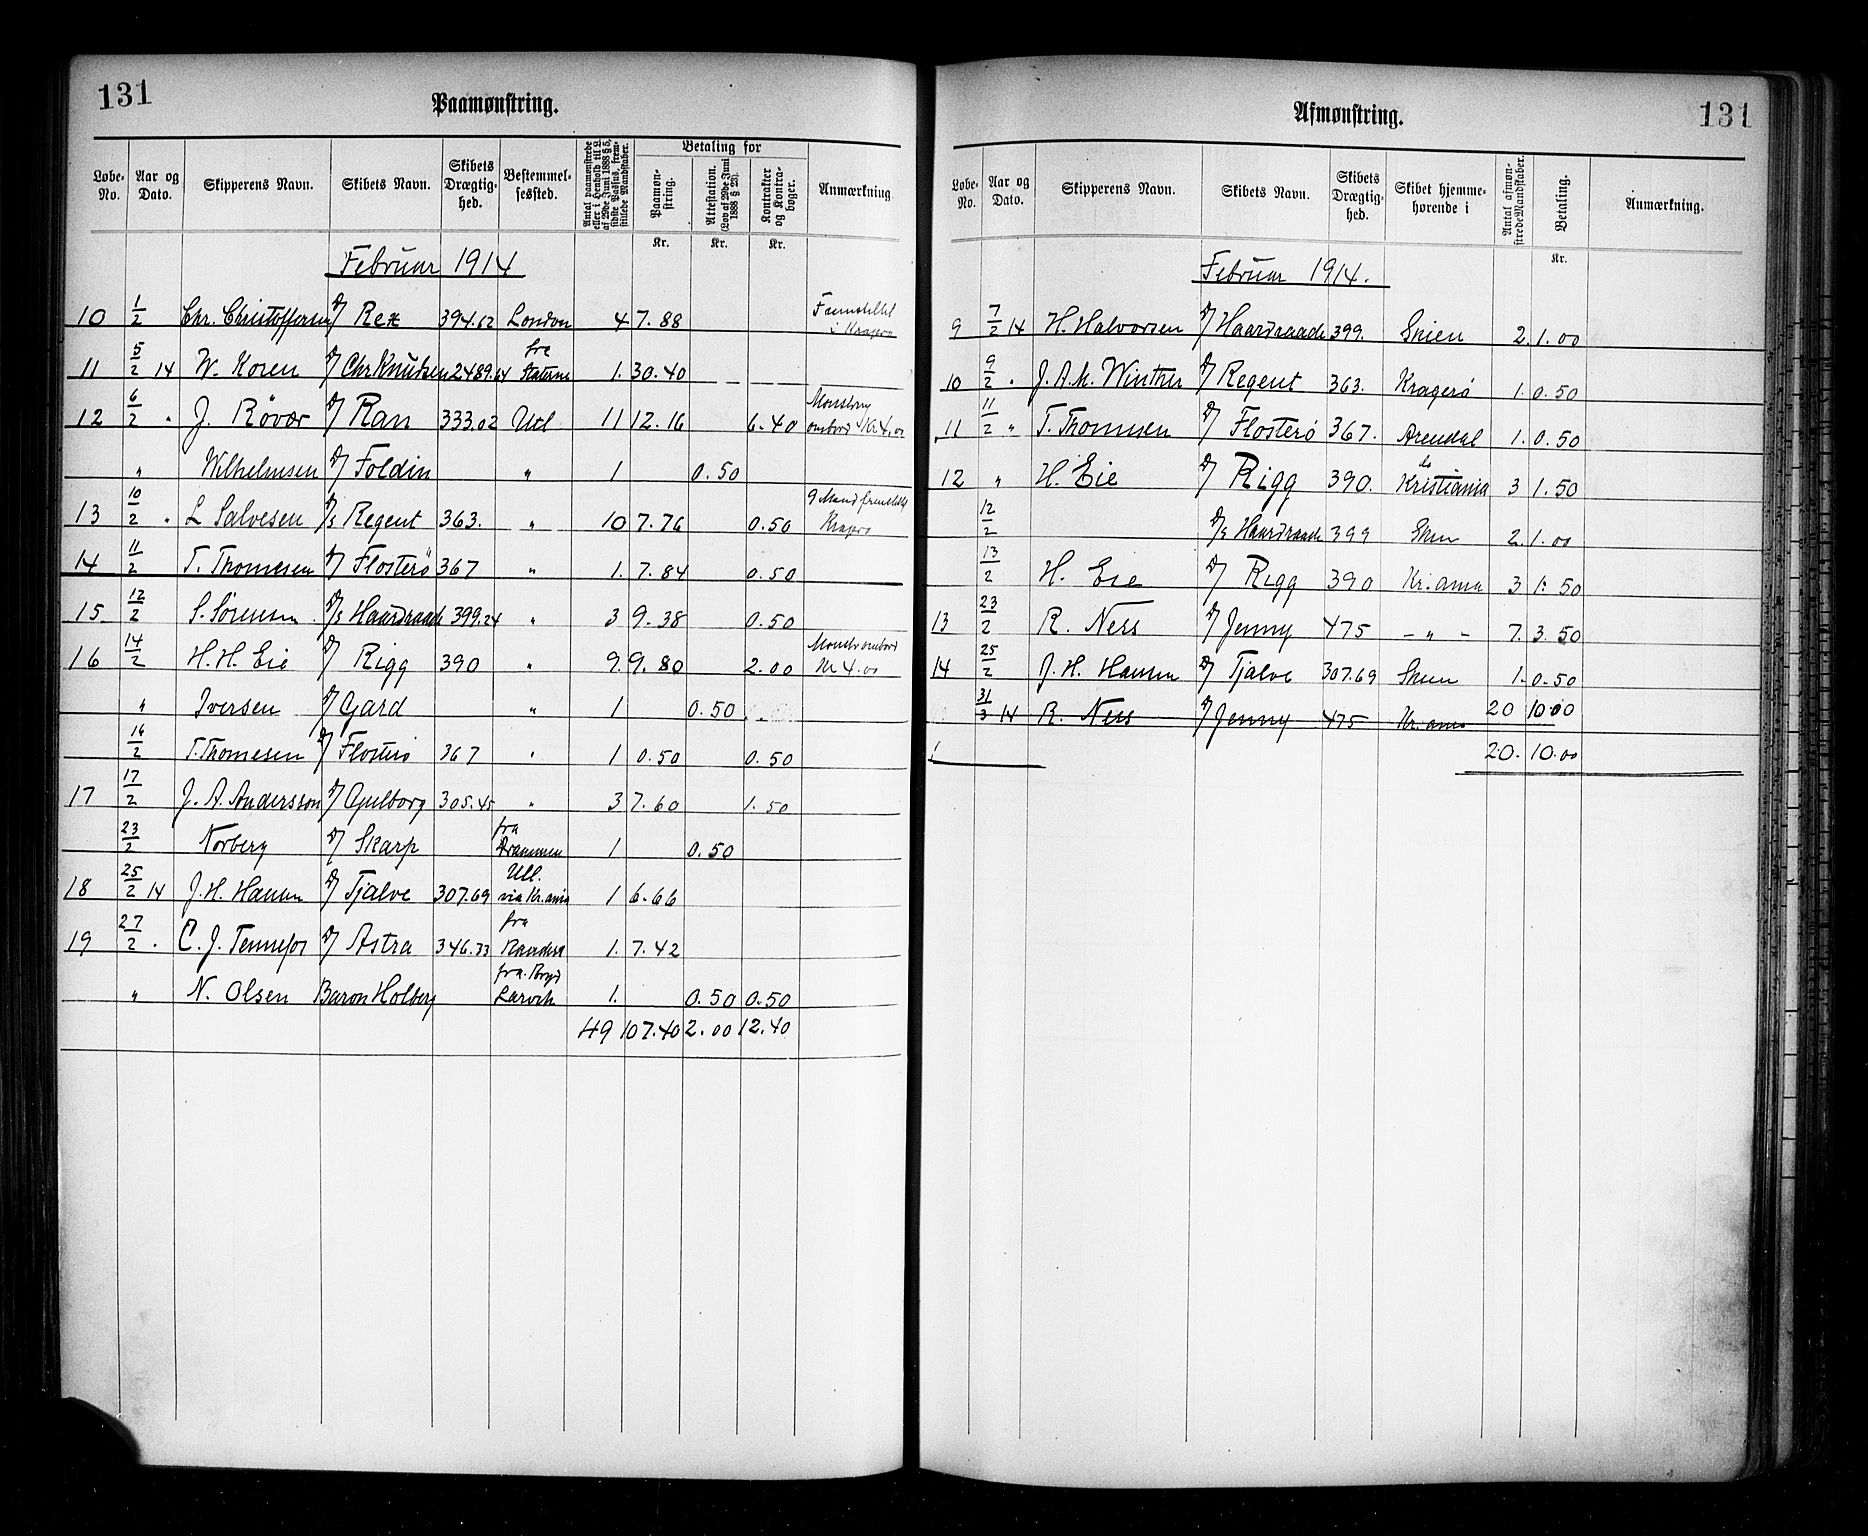 131
Paamønstring.
Løbe-No. | Aar og Dato. | Skipperens Navn. | Skibets Navn. | Skibets Drægtighed. | Bestemmelsessted. | Antal paamønstrede eller i Henhold til L. af 29de Juni 1888 § 5, sidste Passus, fremstillede Mandskaber. | Betaling for: Paamønstring. Kr. | Attestation. (Lov af 29de Juni 1888 § 23). Kr. | Kontrakter og Kontrabøger. Kr. | Anmærkning
Februar 1914
10 | 1/2 | Chr. Christoffersen | D/ Rex | 394.62 | London | 4 | 7.88 | | | Fremstillet i Kragerø
11 | 5/2 14 | W. Koren | D/ Chr Knudsen | 2489.64 | fra Staterne | 1. | 30.40 | _ _ | _ _
12 | 6/2 " | J. Røvær | D/ Ran | 333.02 | Utl | 11 | 12.16 | | 6.40 | Mønstring ombord Kr 4.00
" | Wilhelmsen | D/ Foldin | | " | 1 | | 0.50
13 | 10/2 " | L Salvesen | D/S Regent | 363. | " | 10 | 7.76 | | 0.50 | 9 Mand fremstillet Kragerø
14 | 11/2 | T. Thomesen | D/ Flosterö | 367 | " | 1. | 7.84 | | 0.50
15 | 12/2 | S. Sörensen | D/S Haardraade | 399.24 | " | 3 | 9.38 | | 0.50
16 | 14/2 | H. H. Eie | D/ Rigg | 390 | " | 9. | 9.80 | | 2.00 | Mønstr ombord Kr 4.00
" | Iversen | D/ Gard | | " | 1 | | 0.50
16/2 | T. Thomesen | D/ Flosterø | 367 | " | 1 | 0.50 | | 0.50
17 | 17/2 | J. A. Andersson | D/ Gulborg | 305.45 | " | 3 | 7.60 | | 1.50
23/2 | Norberg | D/ Skarp | | fra Drammen | 1 | | 0.50
18 | 25/2 14 | J. H. Hansen | D/ Tjalve | 307.69 | Utl. via Kr.ania | 1 | 6.66
19 | 27/2 " | C. J. Tennefos | D/ Astra | 346.33 | fra Randers | 1. | 7.42
" | N. Olsen | Baron Holberg | | fra Larvik | 1. | | 0.50 | 0.50
49 | 107.40 | 2.00 | 12.40
131
Afmønstring.
Løbe-No. | Aar og Dato. | Skipperens Navn. | Skibets Navn. | Skibets Drægtighed. | Skibet hjemmehørende i | Antal afmønstrede Mandskaber. | Betaling. Kr. | Anmærkning.
Februar 1914.
9 | 7/2 14 | H. Halvorsen | D/ Haardraade | 399. | Skien | 2. | 1.00
10 | 9/2 " | J. A. M. Winther | D/ Regent | 363. | Kragerø | 1. | 0.50
11 | 11/2 " | T. Thomesen | D/ Flosterø | 367. | Arendal | 1. | 0.50
12 | " | H. Eie | D/ Rigg | 390. | Kristiania | 3 | 1.50
12/2 | | D/S Haardraade | 399 | Skien | 2. | 1.00
13/2 | H. Eie | D/ Rigg | 390 | Kr.ania | 3 | 1.50
13 | 23/2 | R. Ness | D/ Jenny | 475 | – " – | 7. | 3.50
14 | 25/2 | J. H. Hansen | D/ Tjalve | 307.69 | Skien | 1. | 0.50
31/3 14 | R. Ness | D/ Jenny | 475 | Kr.ania | 20 | 10 00
20. | 10.00